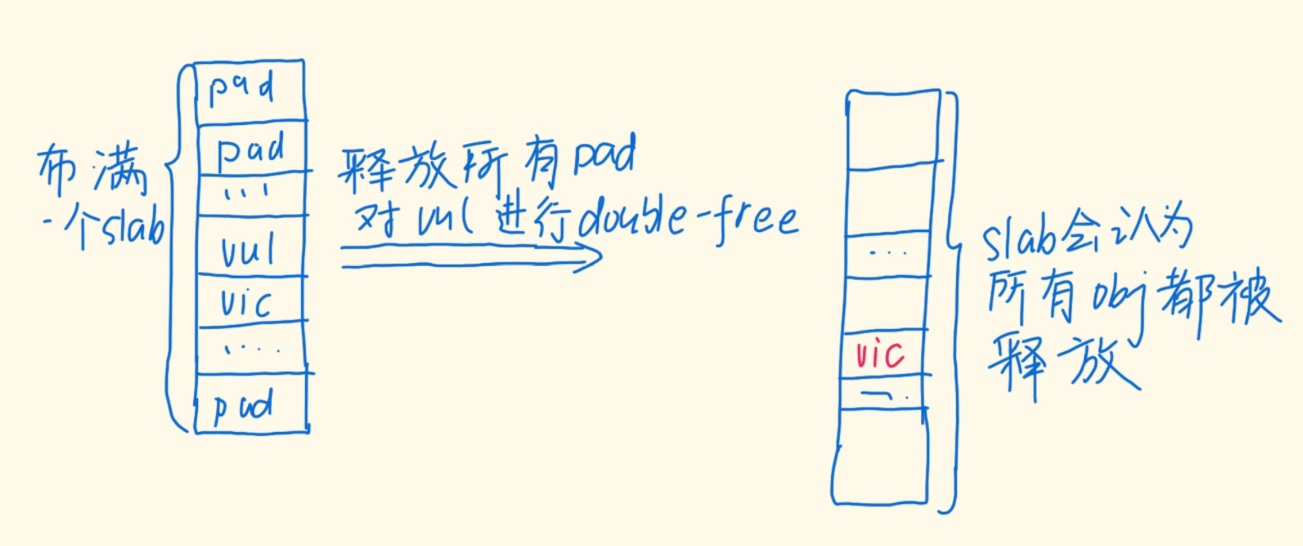 布满
一个slab
pad
pad
...
vul
vic
....
pad
释放所有pad
对vul进行double-free
...
vic
slab会认为
所有obj都被
释放